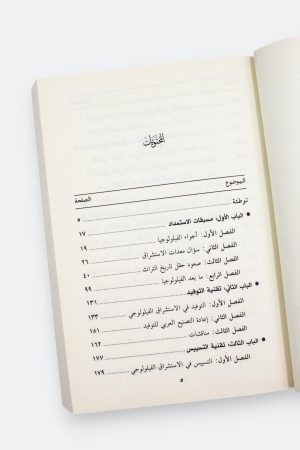 المحتويات
الموضوع الصفحة
توطئة ٥
● الباب الأول: مسبقات الاستمداد ١٧
الفصل الأول: أجواء الفيلولوجيا ١٩
الفصل الثاني: سؤال معدات الاستشراق ٢٦
الفصل الثالث: صعود حقل تاريخ التراث ٤٠
الفصل الرابع: ما بعد الفيلولوجيا ٩٩
● الباب الثاني: تقنية التوفيد ١٣١
الفصل الأول: التوفيد في الاستشراق الفيلولوجي ١٣٣
الفصل الثاني: إعادة التصنيع العربي للتوفيد ١٥١
الفصل الثالث: مناقشات ١٦٢
● الباب الثالث: تقنية التسييس ١٧٧
الفصل الأول: التسييس في الاستشراق الفيلولوجي ١٧٩
٥